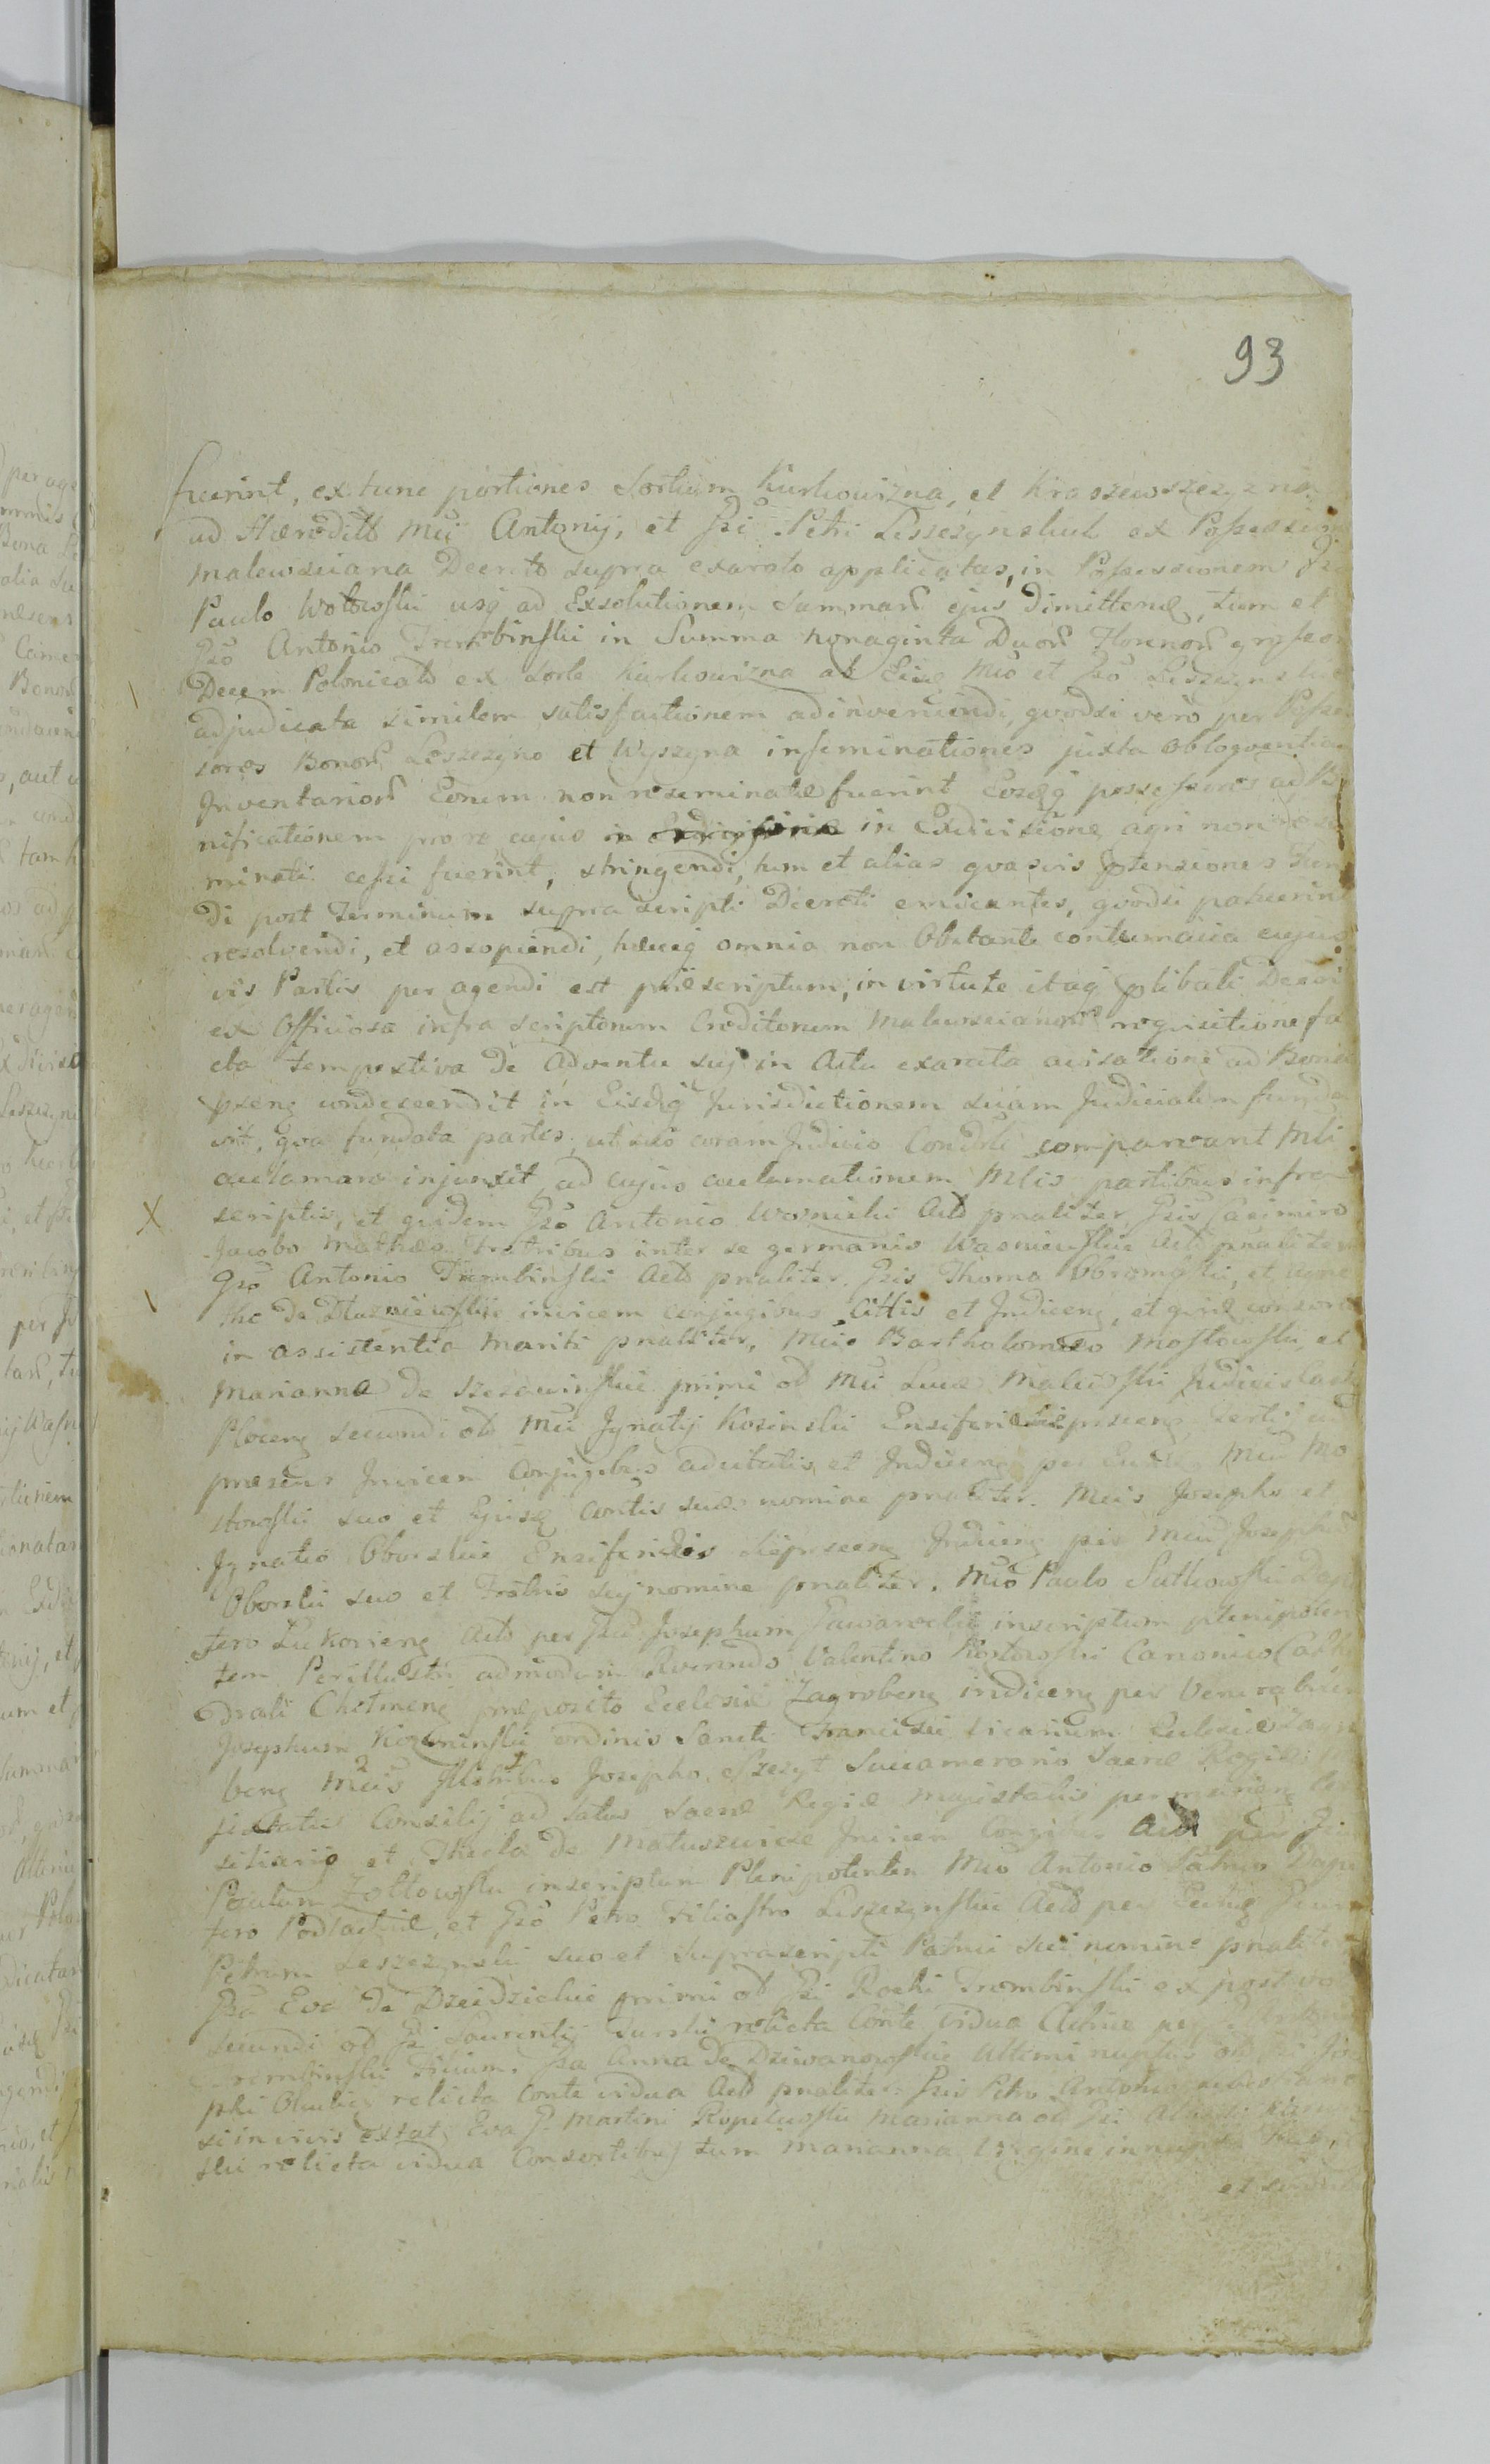 93
fuerint, ex tunc portiones Sortium Kurhowizna, et Kraszewszczyzna
ad Hæreditt Mci Antonij, et Gsi Petri Leszczynskich ex Possessione
Malewsciana Decreto supra exarato applicatas, in Possessionem Gso
Paulo Wołowski usq ad Exsolutionem Summar ejus dimittendæ, tum et
Gso Antonio Trembinski in Summa nonaginta Duor Florenor grosseor
Decem Polonicali ex Sorte Kurhowizna ab Eisdq Mco et Gso Leszczynskie
adjudicata similem satisfactionem adinveniendi, qvodsi vero per Posses
sores Bonor Leszczyno et Wyszyna inseminationes juxta obloqventiam
Inventarior Eorum non reseminatæ fuerint Eosdq possessores ad Bo
nificationem pro re cujus in in Exdivisione agri non rese
minati cessi fuerint, stringendi, tum et alias qvasvis ptensiones Fun
di post Terminum supra scripti Decreti emicantes, qvodsi patuerint
resolvendi, et assopiendi, hæcq omnia non Obstante contumacia cujus
vis Partis peragendi est præscriptum, in virtute itaq plibati Decreti
ex Officiosa infra scriptorum Creditorum Malewscianor reqvisitione fa
cta tempestiva de Adventu suj in Actu exarata avisatione ad Bona
psens condescendit in Eisdq Jurisdictionem suam Judicialem funda
vit, qva fundata partes, ut suo coram Judicio Condesli compareant Mli
acclamare injunxit, ad cujus acclamationem Mlis partibus infra
scriptis, et qvidem Gso Antonio Wosnicki Actt pnaliter, Gsis Casimiro
Jacobo Mathæo Fratribus inter se germanis Wasniewskie Actt pnaliter
Gso Antonio Trembinski Actt pnaliter. Gsis Thoma Obrompski, et Agne
the de Dłuzniewskie invicem conjugibus Citis et Indiceng, et qvidq consorte
in assistentia Mariti pnaliter, Mcis Bartholomæo Mostowski, et
Marianna de Szczawinskie primi ott Mci Lucæ Malewski Judicis Castr
Ploceng secundi ott Mci Ignatij Kosinski Ensiferi Lieprsceng tertij ad
præsens Invicem Conjugibus adcitatis et Indiceng per Eundq Mcu Mo
stowski suo et Ejusdq Contis suæ nomine pnaliter. Mcis Josepho et
Ignatio Oborskie Ensiferidis Lieprsceng Indiceng per Mcu Josephu
Oborski suo et Fratris suj nomine pnaliter. Mco Paulo Sutkowski Dapi
fero Lukorieng Actt per Gsu Josephum Gawarecki inscriptum plenipoten
tem Perillustri admodum Rverendo Valentino Kostowski Canonico Cathe
drali Chelmeng præposito Ecclesiæ Zagrobeng indiceng per Venerabilem
Josephum ordinis Sancti Francisci vicarium Ecclesiæ Zagro
beng Mcis Illstribus Josepho Szczyt Succamerario Sacræ Regiæ Ma
jestatis Consilij ad latus Sacræ Regiæ Majestatis permaneng Con
siliario et Thecla de Matuszewicze Invicem Congibus Actt per Gsu
Paulum Zołtowski inscriptum Plenipotenten Mco Antonio Patruo Dapi
fero Podlachiæ, et Gso Petro Filiastro Leszczynskie Actt per Eundq Gsum
Petrum Leszczynski suo et suprascripti Patrui sui nomine pnaliter
Gsa Eva de Dzeidzickie primi ott Gsi Rochi Trombinski ex post vo
secundi ott Gsi Laurentij Turski relicta Conte vidua Actrice per Antoniu
Trembinski Filium. Gsa Anna de Dziwanowskie Ultimi nuptus ott Gsi Jose
phi relicta Conte vidua Actt pnaliter. Gsis Petro Antonio Sebastiano
si in vivis extat, Eva G. Martini Ropelewski Marianna ott Gsi
ski relicta vidua Consortibus tum Marianna Virgine innupta
et